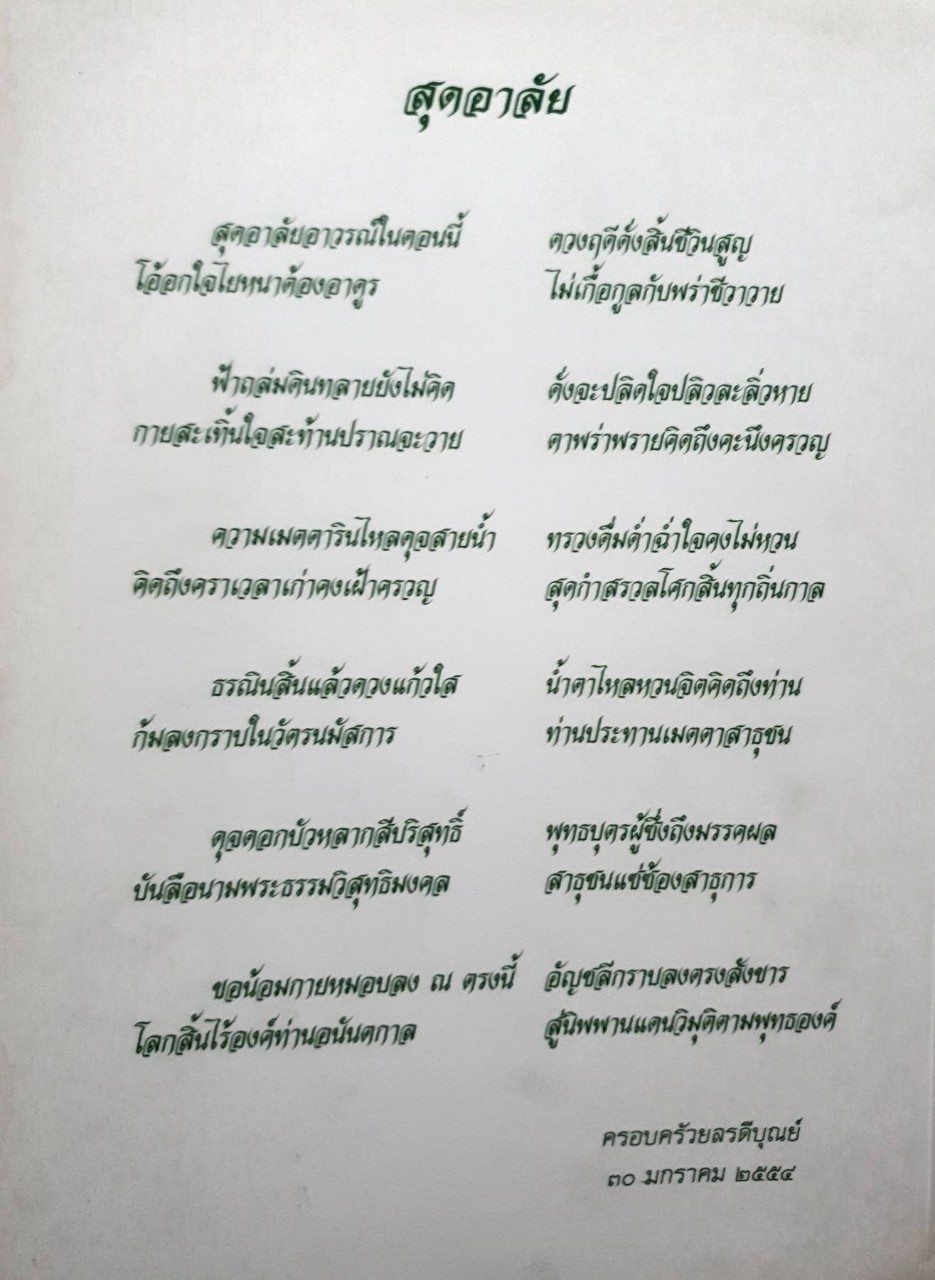 สุดอาลัย
สุดอาลัยอาวรณ์ในตอนนี้ ดวงฤดีดั่งสิ้นชีวินสูญ
โอ้อกใจไยหนาต้องอาดูร ไม่เกื้อกูลกับพร่าชีวาวาย
ฟ้าถล่มดินทลายยังไม่คิด ดั่งจะปลิดใจปลิวละลิ่วหาย
กายสะเทิ้นใจสะท้านปราณจะวาย ตาพร่าพรายคิดถึงคะนึงครวญ
ความเมตตารินไหลดุจสายน้ำ ทรวงดื่มด่ำฉ่ำใจคงไม่หวน
คิดถึงคราเวลาเก่าคงเฝ้าครวญ สุดกำสรวลโศกสิ้นทุกถิ่นกาล
ธรณินสิ้นแล้วดวงแก้วใส น้ำตาไหลหวนจิตคิดถึงท่าน
ก้มลงกราบในวัตรนมัสการ ท่านประทานเมตตาสาธุชน
ดุจดอกบัวหลากสีปริสุทธิ์ พุทธบุตรผู้ซึ่งถึงมรรคผล
บันลือนามพระธรรมวิสุทธิมงคล สาธุชนแซ่ซ้องสาธุการ
ขอน้อมกายหมอบลง ณ ตรงนี้ อัญชลีกราบลงตรงสังขาร
โลกสิ้นไร้องค์ท่านอนันตกาล สู่นิพพานแดนวิมุติตามพุทธองค์
ครอบครัวยลรดีบุณย์
๓๐ มกราคม ๒๕๕๔